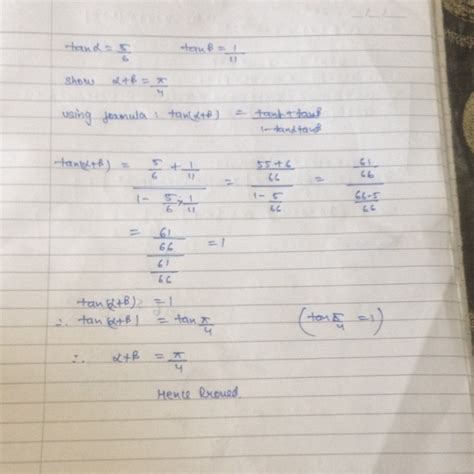 tanα = 5/6 tanβ = 1/11
show α+β = π/4
using formula : tan(α+β) = tanα + tanβ / 1 - tanα tanβ
tan(α+β) = (5/6 + 1/11) / (1 - 5/6 × 1/11) = ((55+6)/66) / (1 - 5/66) = (61/66) / ((66-5)/66)
= (61/66) / (61/66) = 1
tan(α+β) = 1
∴ tan(α+β) = tan π/4 (tan π/4 = 1)
∴ α+β = π/4
Hence Proved.